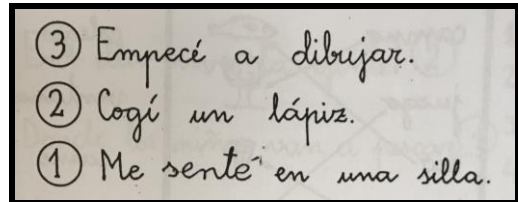 ③ Empecé a dibujar.
② Cogí un lápiz.
① Me senté en una silla.